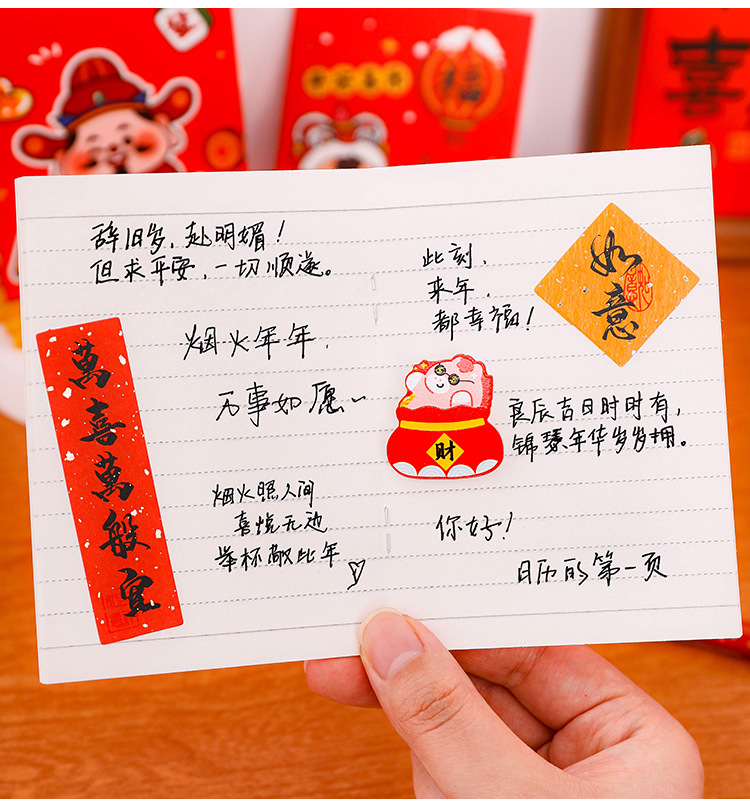 福
喜
辞旧岁，赴明媚！
但求平安，一切顺遂。
此刻，
来年，
都幸福！
如意
烟火年年，
万事如愿～
萬喜萬般宜
财
良辰吉日时时有，
锦瑟年华岁岁拥。
烟火照人间
喜悦无边
举杯敬此年
你好！
日历的第一页